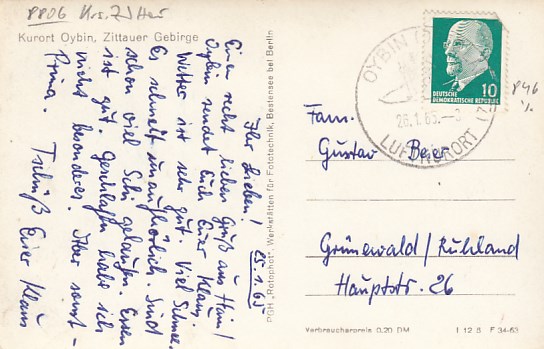 PP06 Krs. Zitter
Kurort Oybin, Zittauer Gebirge
Ihr Lieben! 25.1.65
Einen recht lieben Gruß aus Hain/
Oybin sendet Euch Euer Klaus.
Wetter ist sehr gut. Viel Schnee.
Es schneit unaufhörlich. Sind
schon viel Schi gelaufen. Essen
ist gut. Geschlafen habe ich
nicht besonders. Aber sonst -
Prima.
Tschüß Euer Klaus
PGH „Rotophot", Werkstätten für Fototechnik, Bestensee bei Berlin
OYBIN
26.1.65.-
LUFTKURORT
10
DEUTSCHE
DEMOKRATISCHE REPUBLIK
P46
Fam.
Gustav Beier
Grünewald/Ruhland
Hauptstr. 26
Verbraucherpreis 0.20 DM I 12 8 F 34-63